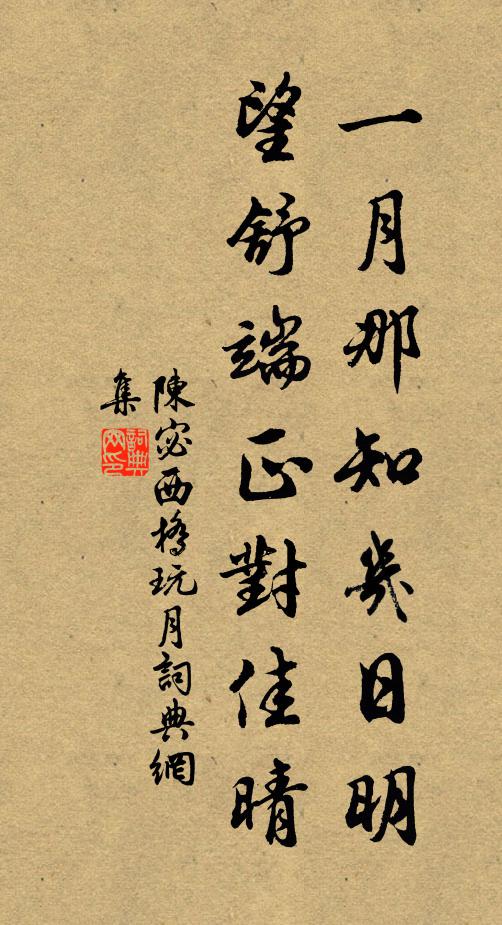 一月那知幾日明
望舒端正對佳晴
陳宓西橋玩月詞典網
集
詞典
网印